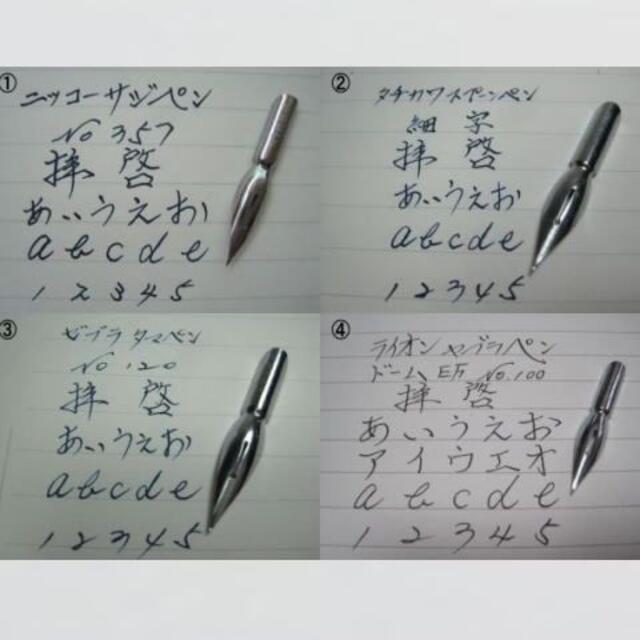 ①
ニッコーサジペン
No 357
拝啓
あいうえお
a b c d e
1 2 3 4 5
②
タチカワスプーンペン
細字
拝啓
あいうえお
a b c d e
1 2 3 4 5
③
ゼブラタマペン
No 120
拝啓
あいうえお
a b c d e
1 2 3 4 5
④
ライオン ペン
No.100
拝啓
あいうえお
アイウエオ
a b c d e
1 2 3 4 5